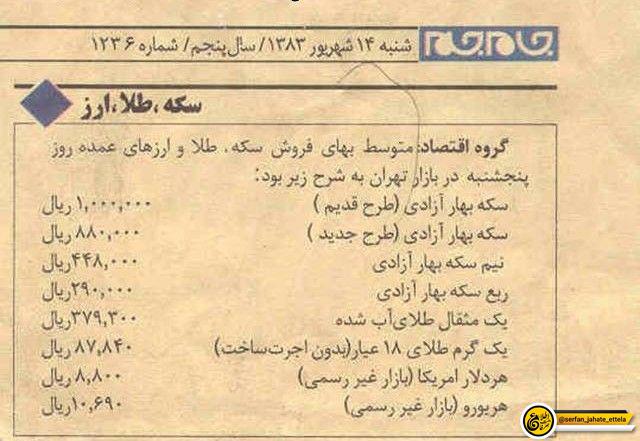 جام‌جم
شنبه ۱۴ شهریور ۱۳۸۳/ سال پنجم/ شماره ۱۲۳۶
سکه، طلا، ارز
گروه اقتصاد: متوسط بهای فروش سکه، طلا و ارزهای عمده روز
پنجشنبه در بازار تهران به شرح زیر بود:
سکه بهار آزادی (طرح قدیم ) ۱,۰۰۰,۰۰۰ ریال
سکه بهار آزادی (طرح جدید ) ۸۸۰,۰۰۰ ریال
نیم سکه بهار آزادی ۴۴۸,۰۰۰ ریال
ربع سکه بهار آزادی ۲۹۰,۰۰۰ ریال
یک مثقال طلای آب شده ۳۷۹,۳۰۰ ریال
یک گرم طلای ۱۸ عیار(بدون اجرت ساخت) ۸۷,۸۴۰ ریال
هر دلار امریکا (بازار غیر رسمی) ۸,۸۰۰ ریال
هر یورو (بازار غیر رسمی) ۱۰,۶۹۰ ریال
@serfan_jahate_ettela